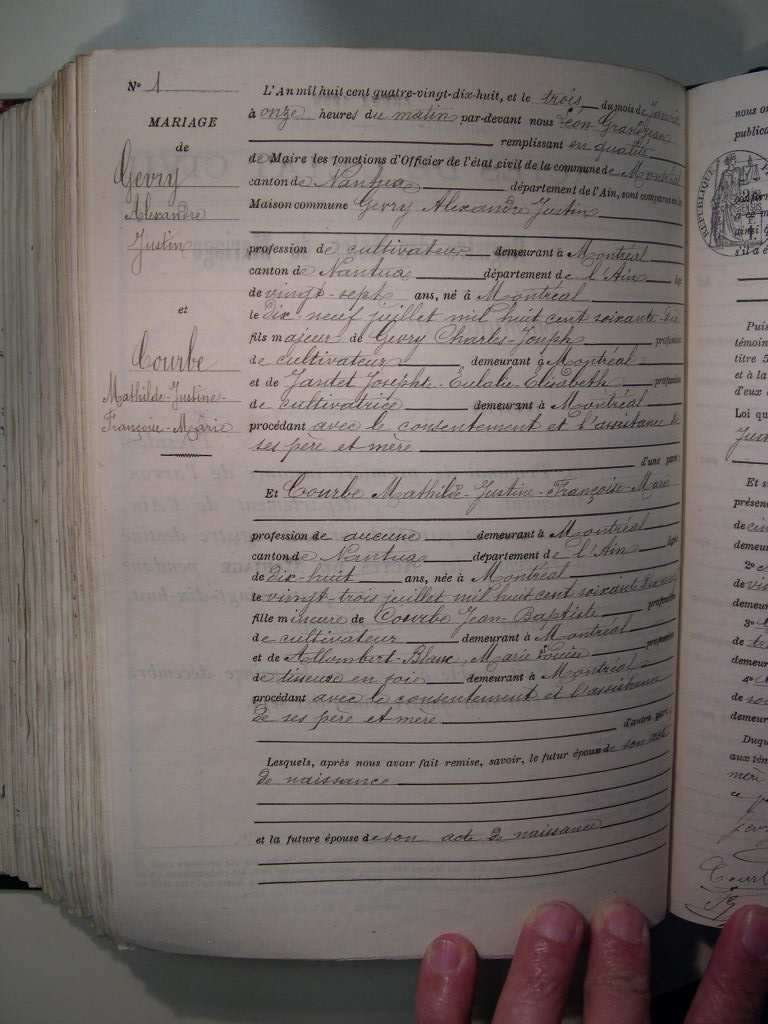 Nº 1
MARIAGE
de
Gevry
Alexandre
Justin
et
Courbe
Mathilde-Justine-
Françoise-Marie
L'An mil huit cent quatre-vingt-dix-huit, et le trois du mois de
à onze heures du matin par-devant nous Léon
remplissant en qualité
de Maire les fonctions d'Officier de l'état civil de la commune de Montréal
canton de Nantua département de l'Ain, sont comparus en la
Maison commune Gevry Alexandre Justin
profession de cultivateur demeurant à Montréal
canton de Nantua département de l'Ain âgé
de vingt-sept ans, né à Montréal
le dix-neuf juillet mil huit cent soixante-dix
fils majeur de Gevry Charles-Joseph profession
de cultivateur demeurant à Montréal
et de Jantet Josephte-Eulalie-Elisabeth profession
de cultivatrice demeurant à Montréal
procédant avec le consentement et l'assistance de
ses père et mère
d'une part
Et Courbe Mathilde-Justine-Françoise-Marie
profession de aucune demeurant à Montréal
canton de Nantua département de l'Ain âgée
de dix-huit ans, née à Montréal
le vingt-trois juillet mil huit cent soixante
fille mineure de Courbe Jean Baptiste profession
de cultivateur demeurant à Montréal
et de Allombert-Blanc, Marie Louise profession
de tisseuse en soie demeurant à Montréal
procédant avec le consentement et l'assistance
de ses père et mère
d'autre part
Lesquels, après nous avoir fait remise, savoir, le futur époux de son acte
de naissance
et la future épouse de son acte de naissance
nous on
publica
RÉPUBLIQUE
confor
à ce m
ainsi q
s'il a é
Puis
témoin
titre 5
et à la
d'eux
Loi qu
Et s
présen
de cin
demeur
2º
de vin
demeur
3º
de tr
demeur
4º
de soi
demeur
Duqu
aux tém
mère
ce p
Courb